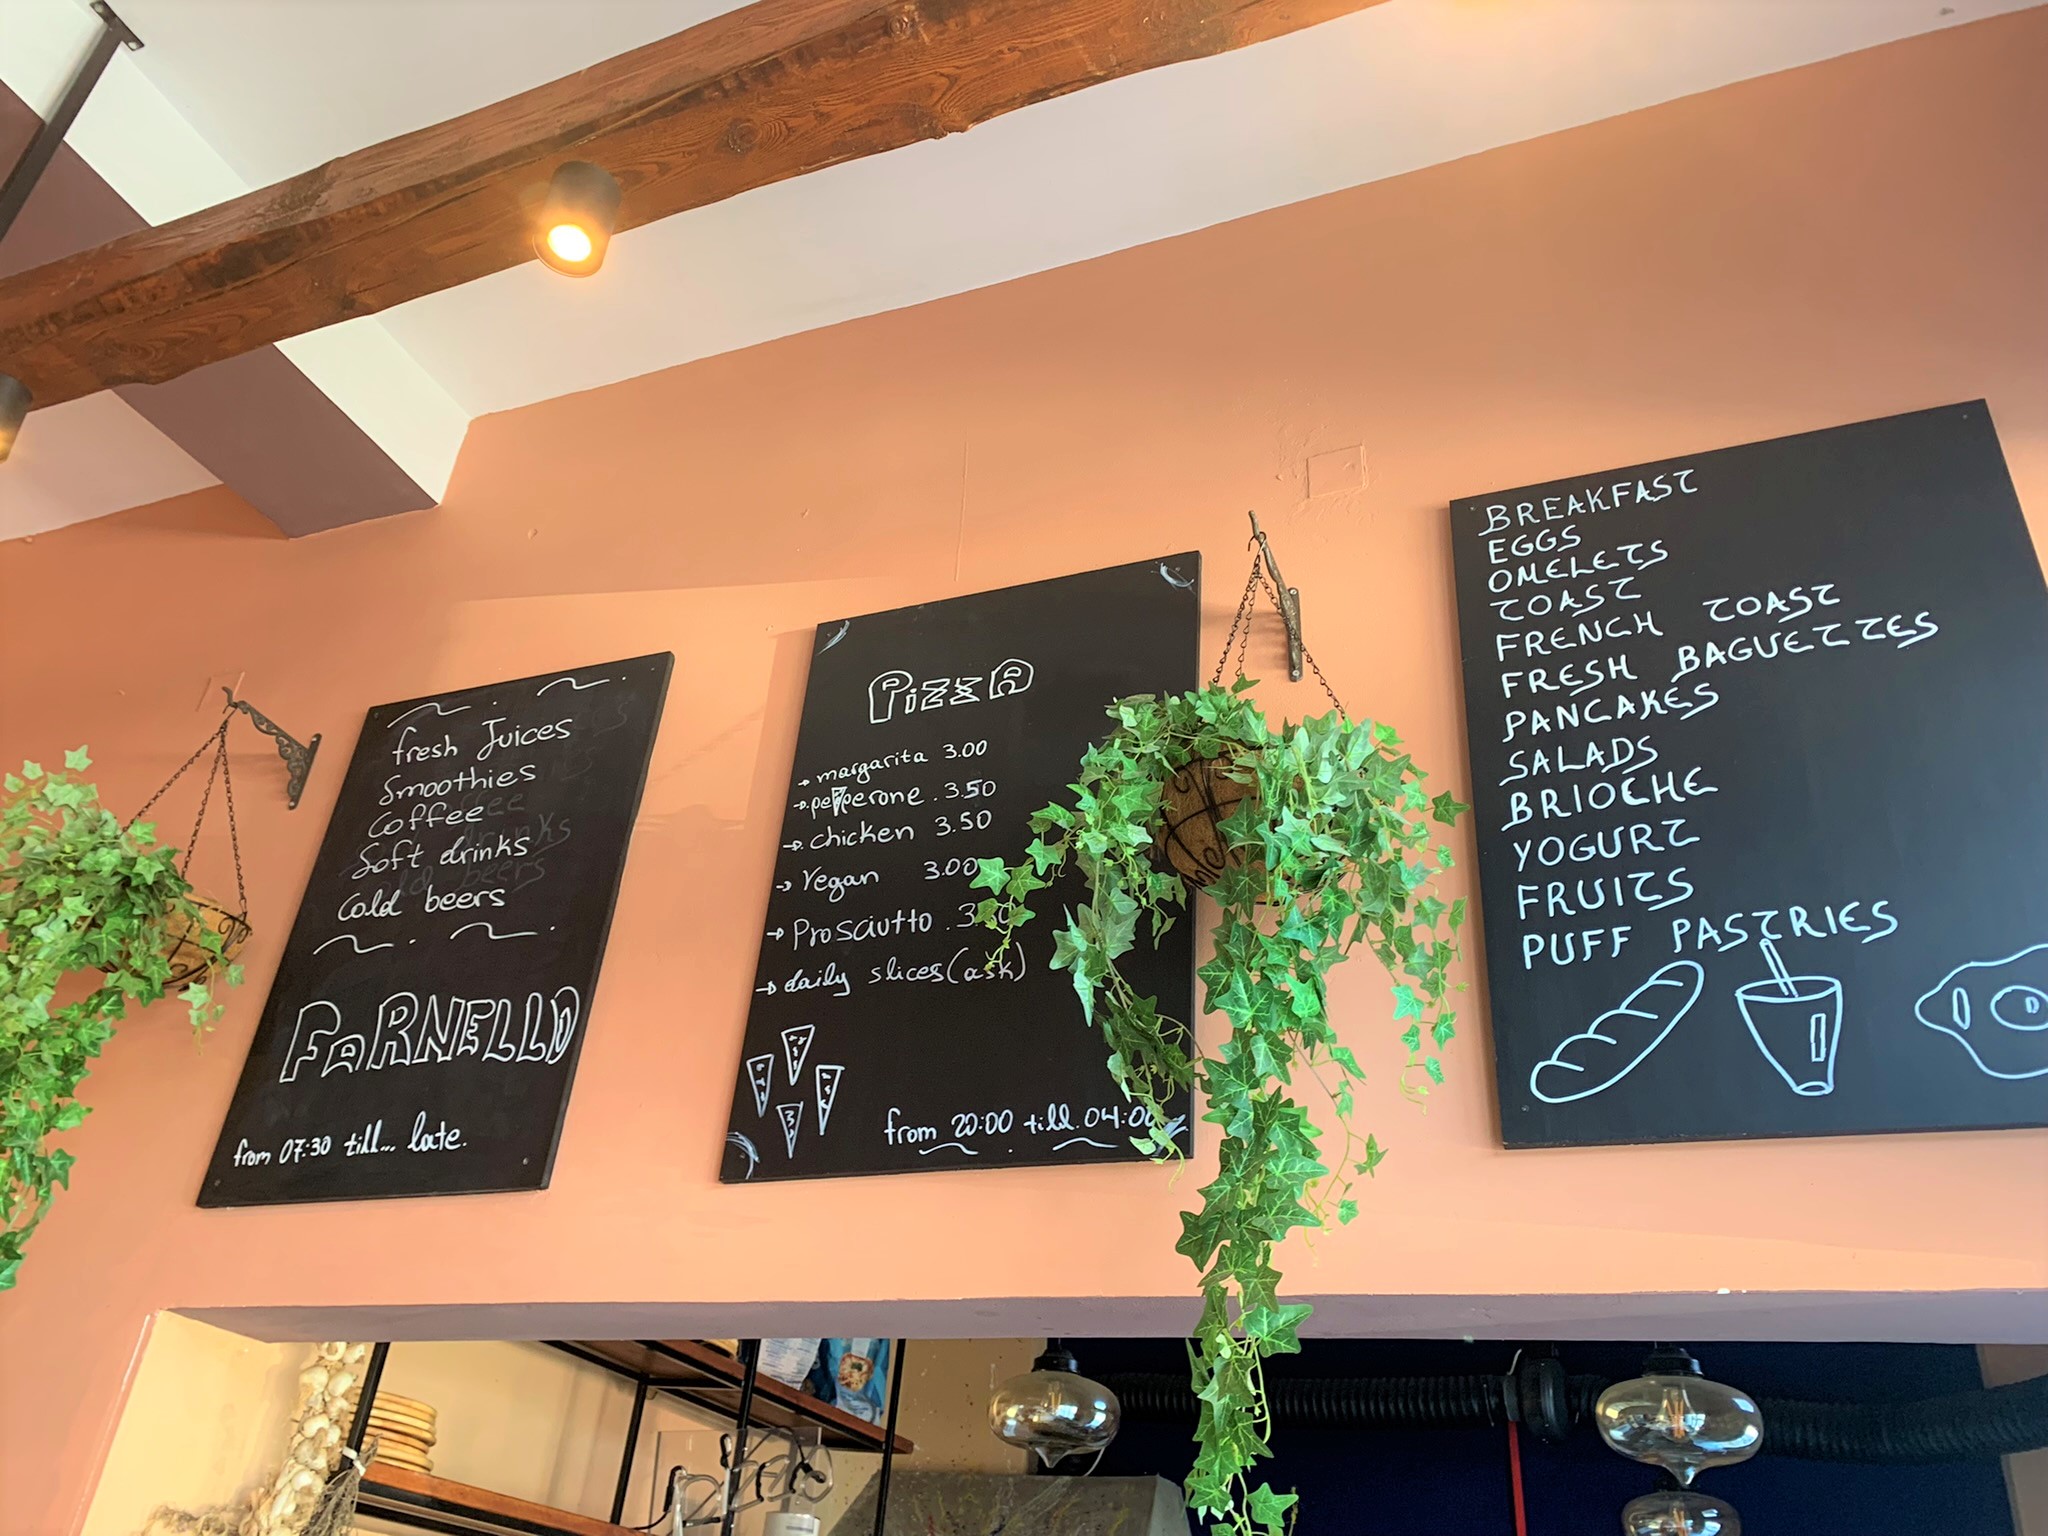 fresh Juices
Smoothies
Coffee
Soft drinks
Cold beers
FORNELLO
from 07:30 till... late.
PiZZA
margarita 3.00
pepperone . 3.50
chicken 3.50
Vegan 3.00
Prosciutto . 3.50
daily slices (ask)
from 20:00 till. 04:00
BREAKFAST
EGGS
OMELETS
TOAST
FRENCH TOAST
FRESH BAGUETTES
PANCAKES
SALADS
BRIOCHE
YOGURT
FRUITS
PUFF PASTRIES